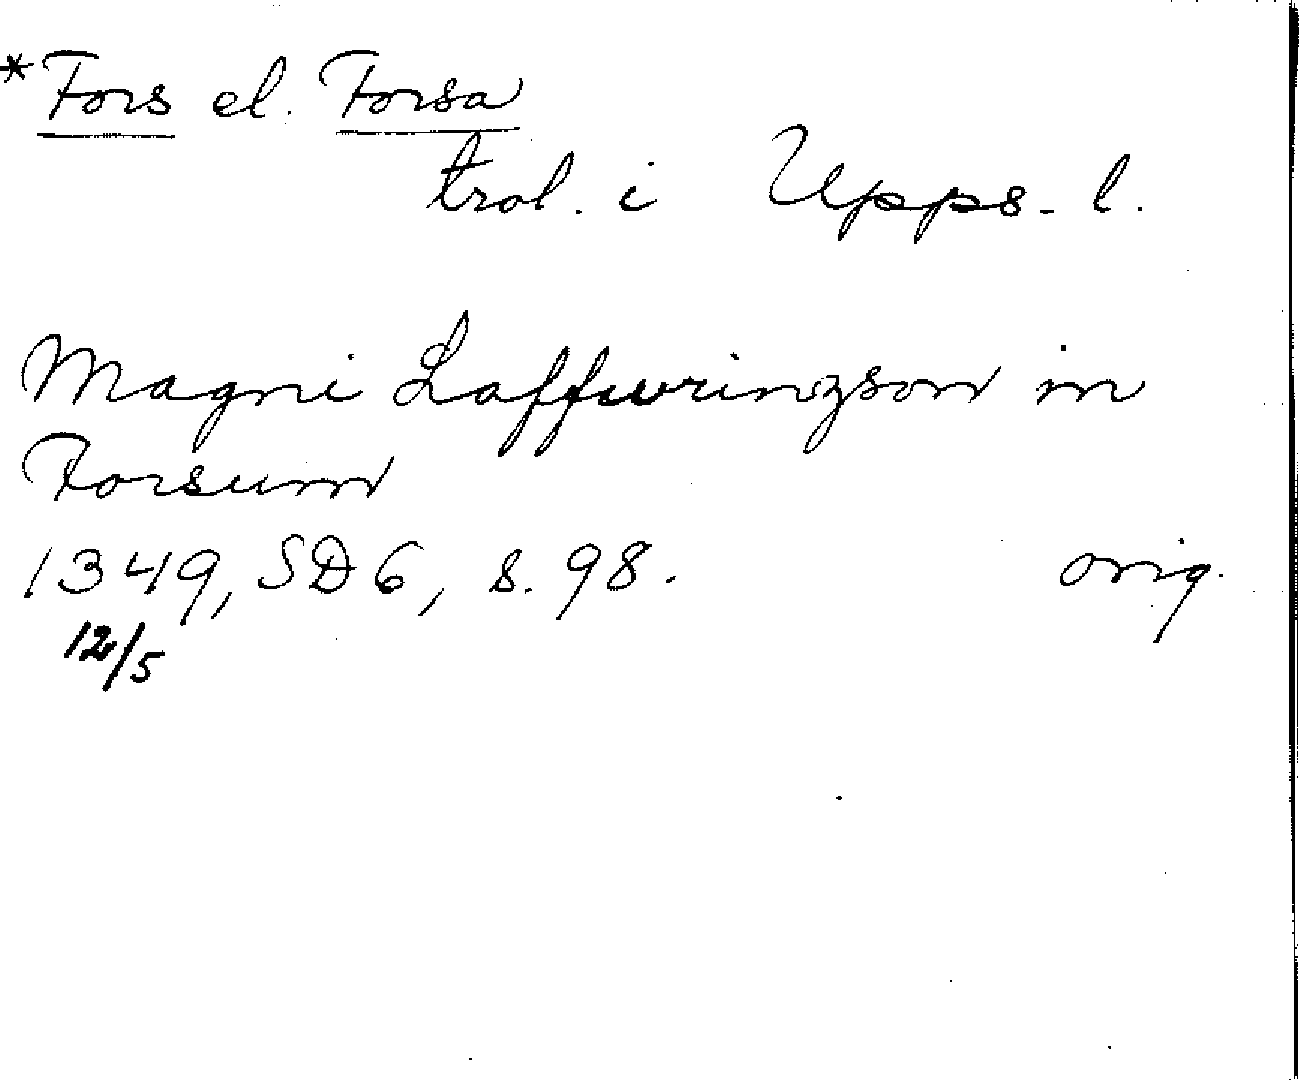 *Fors el. Forsa
trol. i Upps. l.
Magni Laffwringzson in
Forsum
1349, SD 6, s. 98. orig.
12/5